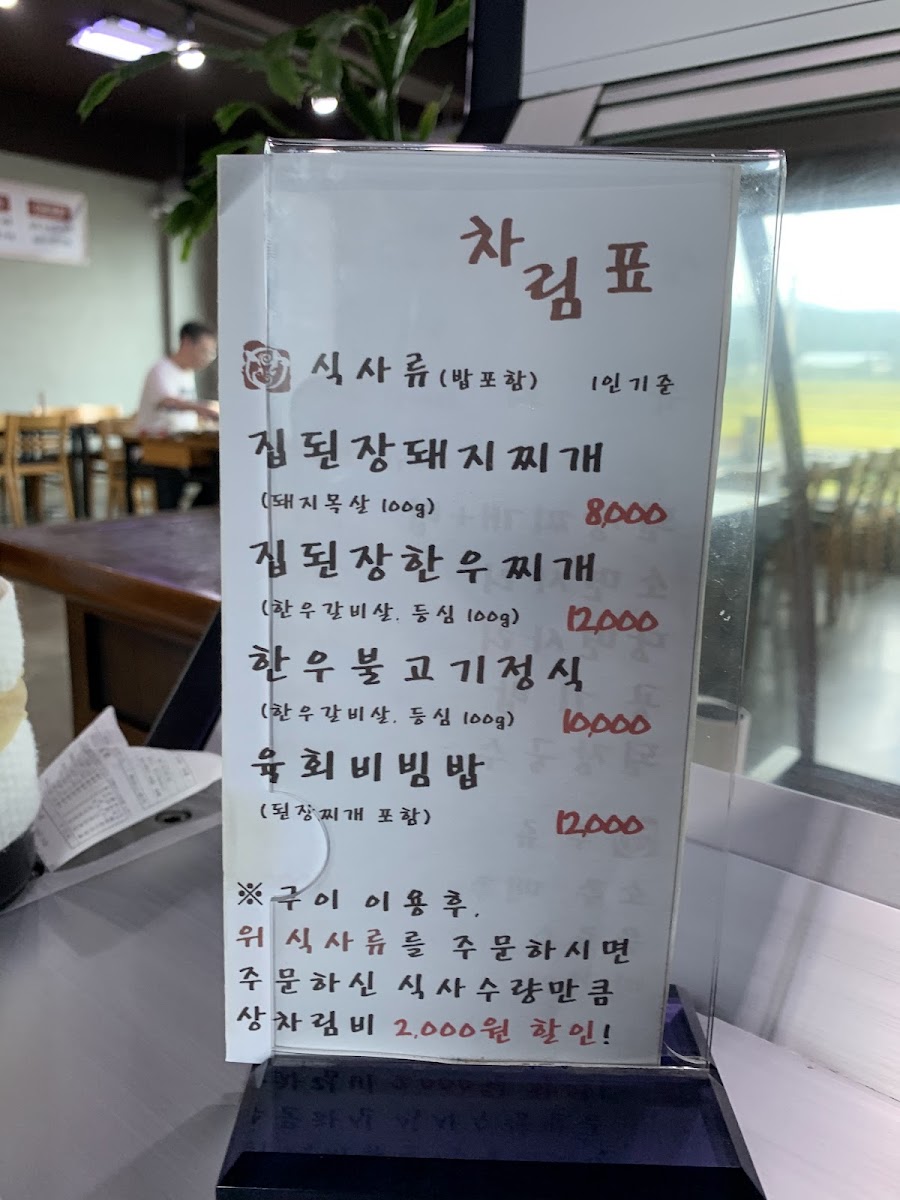 차림표
식사류(밥포함) 1인기준
집된장돼지찌개
(돼지목살 100g) 8,000
집된장한우찌개
(한우갈비살. 등심 100g) 12,000
한우불고기정식
(한우갈비살. 등심 100g) 10,000
육회비빔밥
(된장찌개 포함) 12,000
※구이 이용후,
위 식사류를 주문하시면
주문하신 식사수량만큼
상차림비 2,000원 할인!